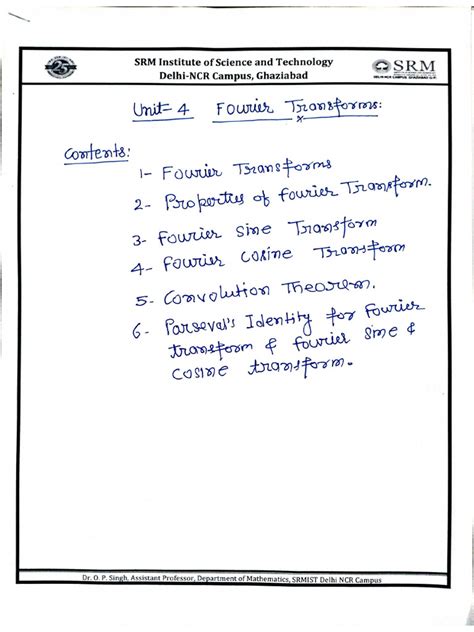 SRM Institute of Science and Technology
Delhi-NCR Campus, Ghaziabad
25
SRM
Unit- 4 Fourier Transforms:
Contents:
1- Fourier Transforms
2- Properties of Fourier Transform.
3- Fourier Sine Transform
4- Fourier Cosine Transform
5- Convolution Theorem.
6- Parseval's Identity for Fourier
transform & fourier sine &
cosine transform.
Dr. O. P. Singh, Assistant Professor, Department of Mathematics, SRMIST Delhi NCR Campus